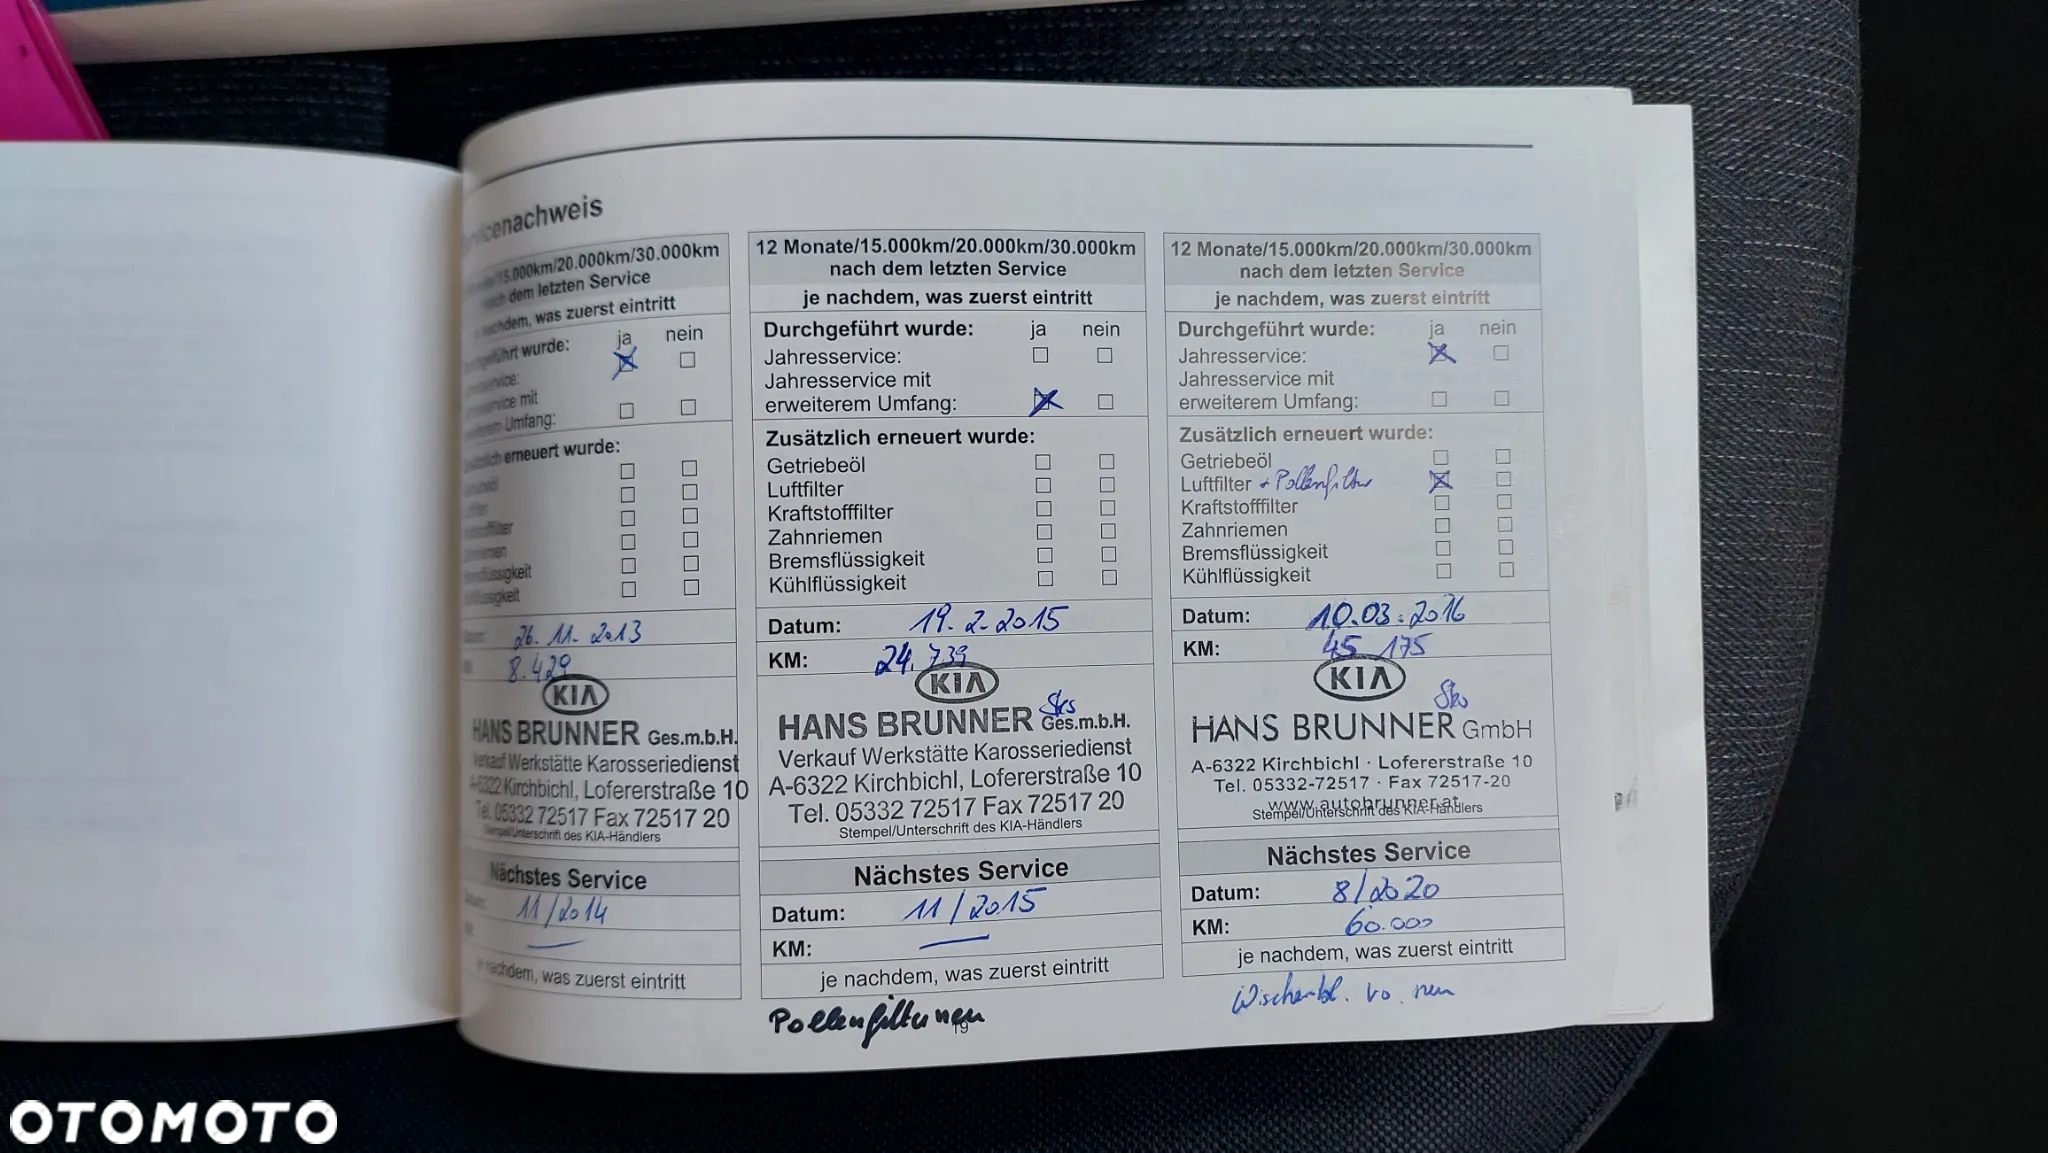 Servicenachweis
/15.000km/20.000km/30.000km
nach dem letzten Service
je nachdem, was zuerst eintritt
Durchgeführt wurde: ja nein
Jahresservice:
Jahresservice mit
erweiterem Umfang:
Zusätzlich erneuert wurde:
Getriebeöl
Luftfilter
Kraftstofffilter
Zahnriemen
Bremsflüssigkeit
Kühlflüssigkeit
Datum: 26. 11. 2013
8.429
KIA
HANS BRUNNER Ges.m.b.H.
Verkauf Werkstätte Karosseriedienst
A-6322 Kirchbichl, Lofererstraße 10
Tel. 05332 72517 Fax 72517 20
Stempel/Unterschrift des KIA-Händlers
Nächstes Service
Datum: 11/2014
je nachdem, was zuerst eintritt
12 Monate/15.000km/20.000km/30.000km
nach dem letzten Service
je nachdem, was zuerst eintritt
Durchgeführt wurde: ja nein
Jahresservice:
Jahresservice mit
erweiterem Umfang:
Zusätzlich erneuert wurde:
Getriebeöl
Luftfilter
Kraftstofffilter
Zahnriemen
Bremsflüssigkeit
Kühlflüssigkeit
Datum: 19. 2. 2015
KM: 24.739
KIA
HANS BRUNNER Ges.m.b.H.
Verkauf Werkstätte Karosseriedienst
A-6322 Kirchbichl, Lofererstraße 10
Tel. 05332 72517 Fax 72517 20
Stempel/Unterschrift des KIA-Händlers
Nächstes Service
Datum: 11/2015
KM: —
je nachdem, was zuerst eintritt
19
12 Monate/15.000km/20.000km/30.000km
nach dem letzten Service
je nachdem, was zuerst eintritt
Durchgeführt wurde: ja nein
Jahresservice:
Jahresservice mit
erweiterem Umfang:
Zusätzlich erneuert wurde:
Getriebeöl
Luftfilter + Pollenfilter
Kraftstofffilter
Zahnriemen
Bremsflüssigkeit
Kühlflüssigkeit
Datum: 10.03.2016
KM: 45 175
KIA
HANS BRUNNER GmbH
A-6322 Kirchbichl · Lofererstraße 10
Tel. 05332-72517 · Fax 72517-20
www.autobrunner.at
Stempel/Unterschrift des KIA-Händlers
Nächstes Service
Datum: 8/2020
KM: 60.000
je nachdem, was zuerst eintritt
OTOMOTO